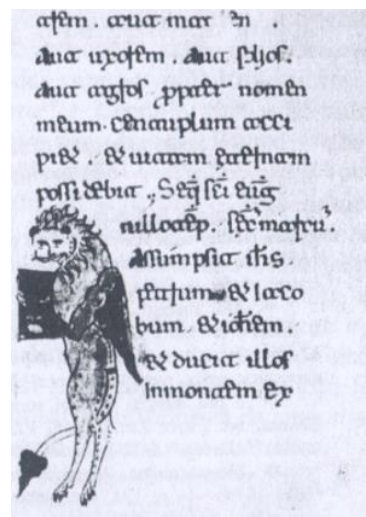 atrem. aut matrem
aut uxorem. aut filios.
aut agros. ppter nomen
meum. centuplum acci
piet. et uitam eternam
possidebit. Seq̄ sc̄i euḡ
in illo temp. sec̄ matheū.
Assumpsit ih̄s
petrum et iaco
bum. et ioh̄em.
et ducit illos
inmontem ex